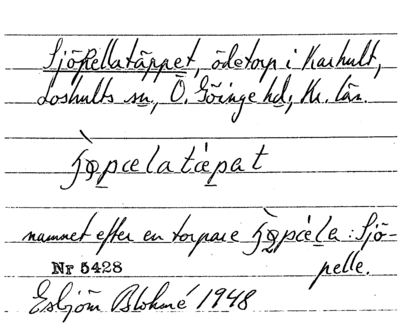 Sjöpellatäppet, ödetorp i Karhult,
Loshults sn, Ö. Göinge hd, Kr. län.
namnet efter en torpare : Sjö-
Nr 5428 pelle.
Esbjörn Blohmé 1948